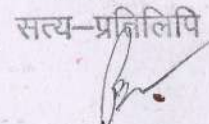 सत्य-प्रतिलिपि